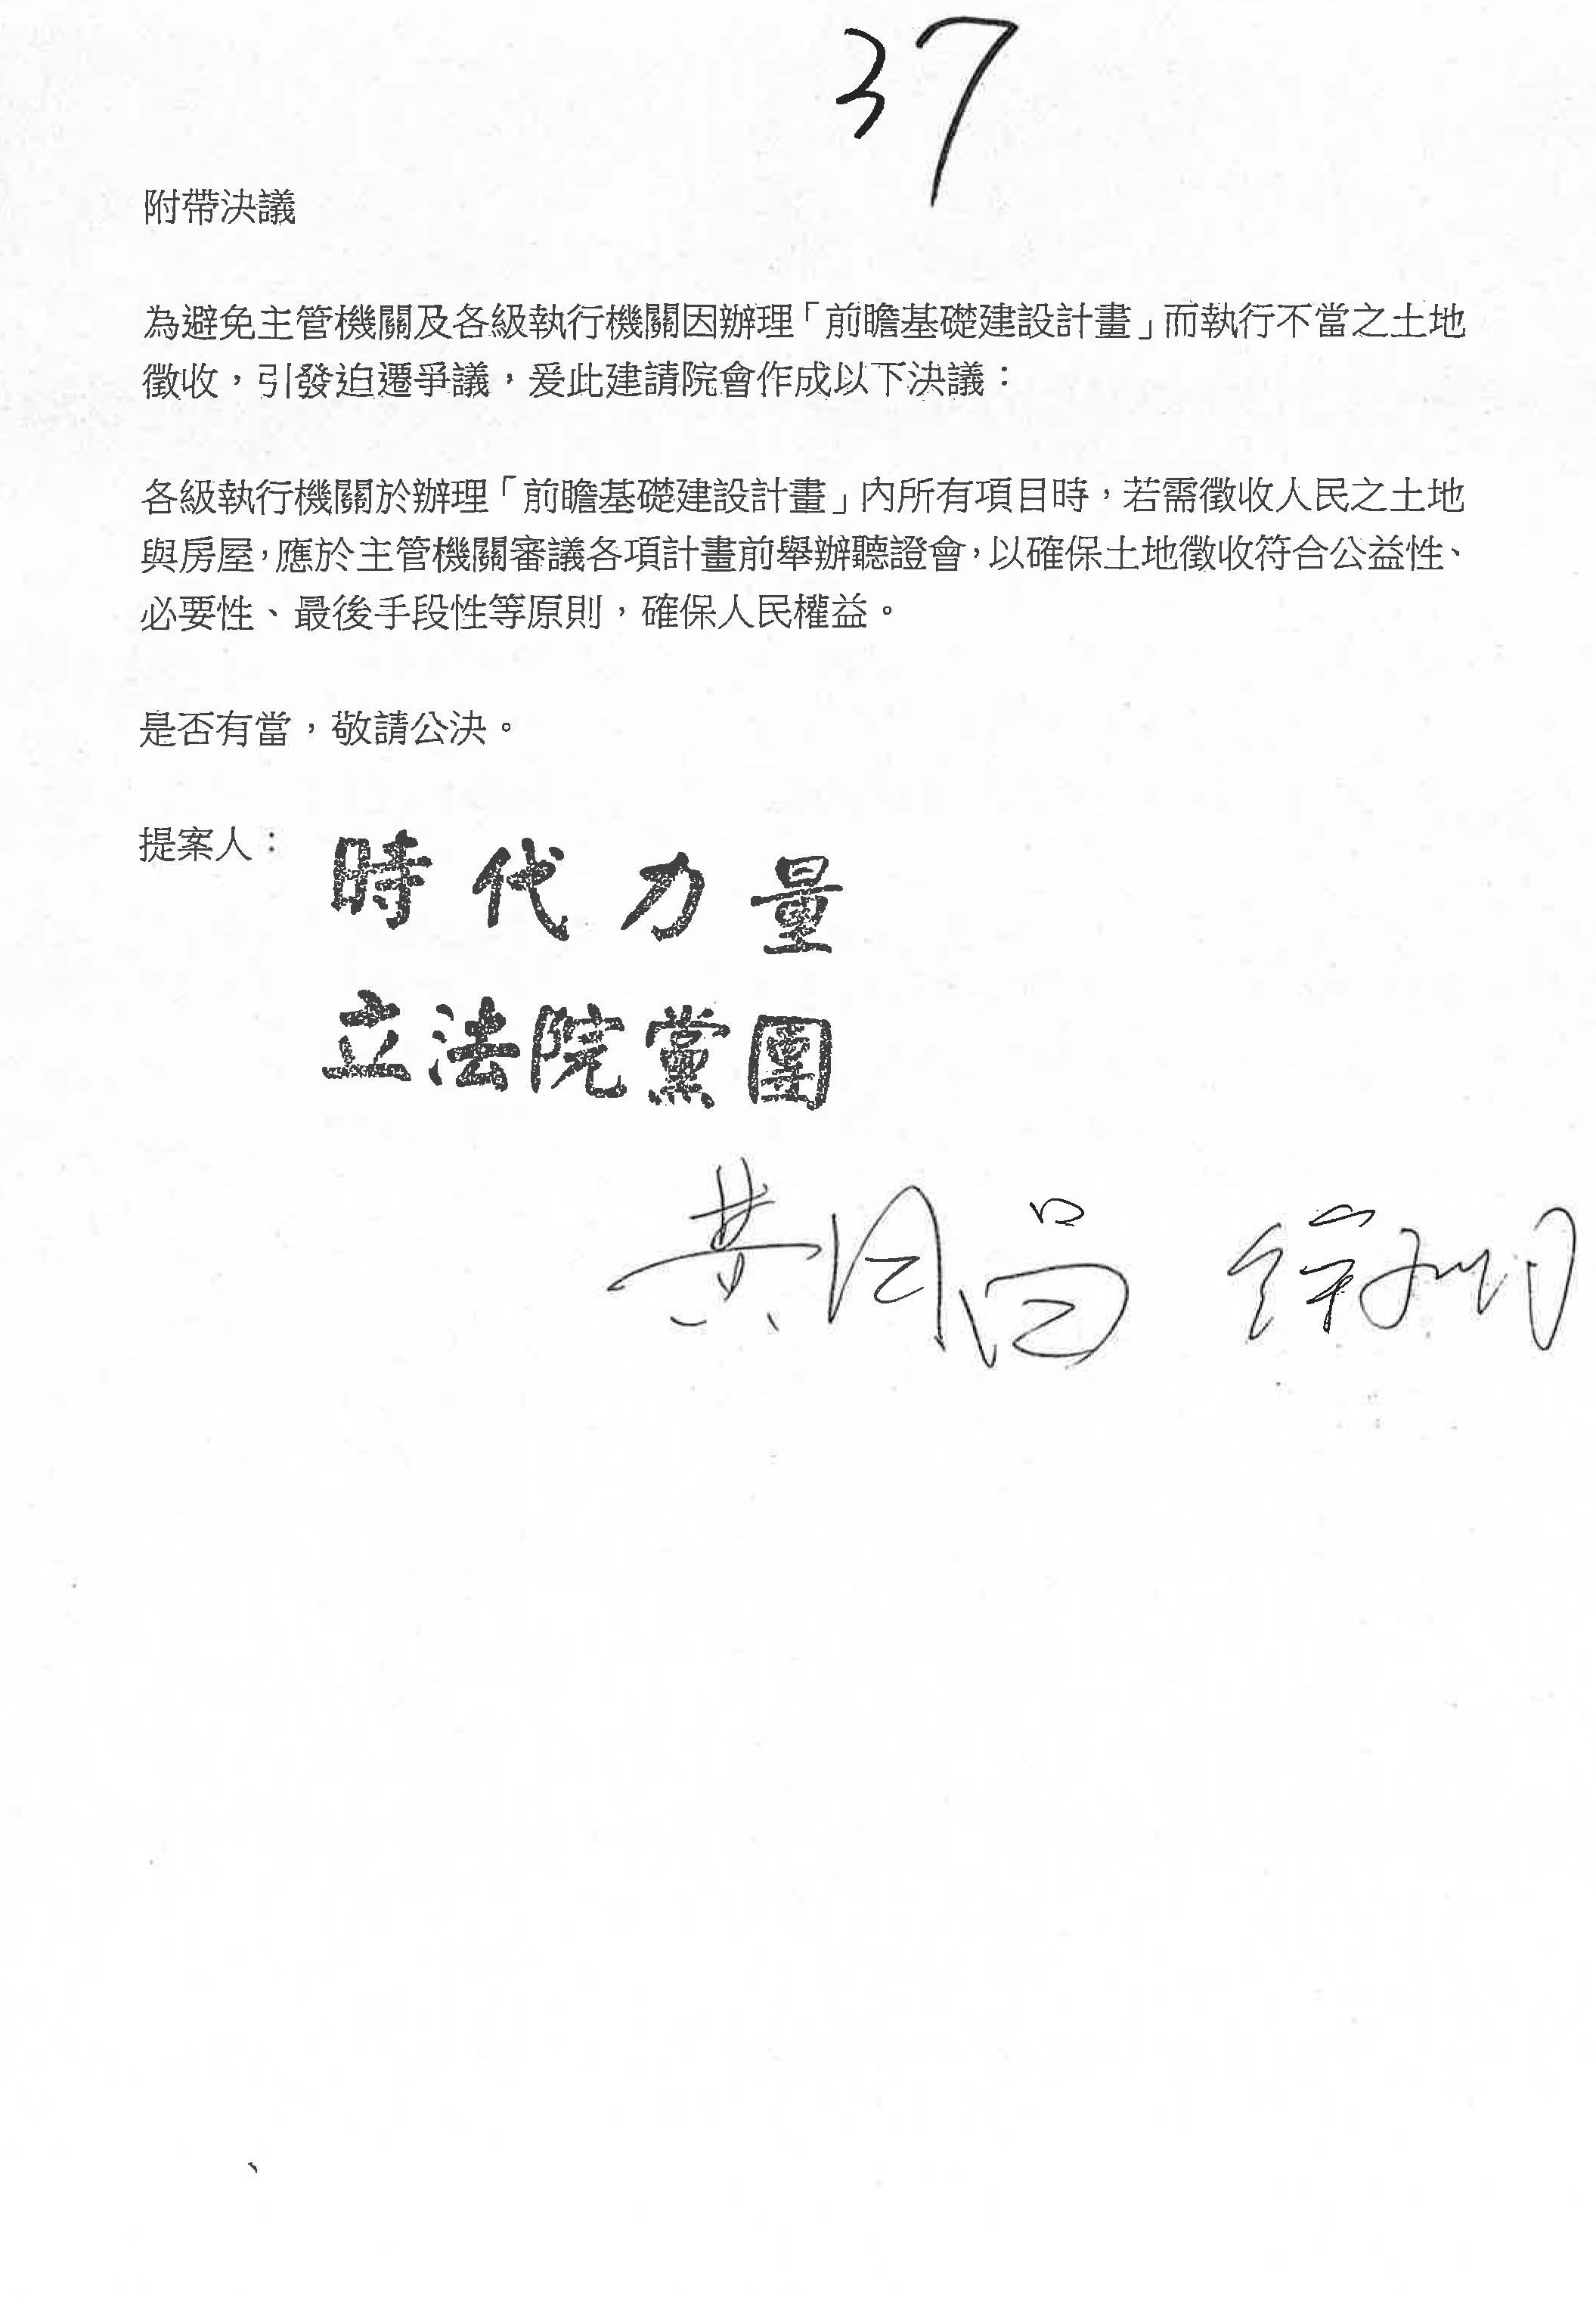 37
附帶決議
為避免主管機關及各級執行機關因辦理「前瞻基礎建設計畫」而執行不當之土地
徵收，引發迫遷爭議，爰此建請院會作成以下決議：
各級執行機關於辦理「前瞻基礎建設計畫」內所有項目時，若需徵收人民之土地
與房屋，應於主管機關審議各項計畫前舉辦聽證會，以確保土地徵收符合公益性、
必要性、最後手段性等原則，確保人民權益。
是否有當，敬請公決。
提案人：
時代力量
立法院黨團
黃國昌 徐永明